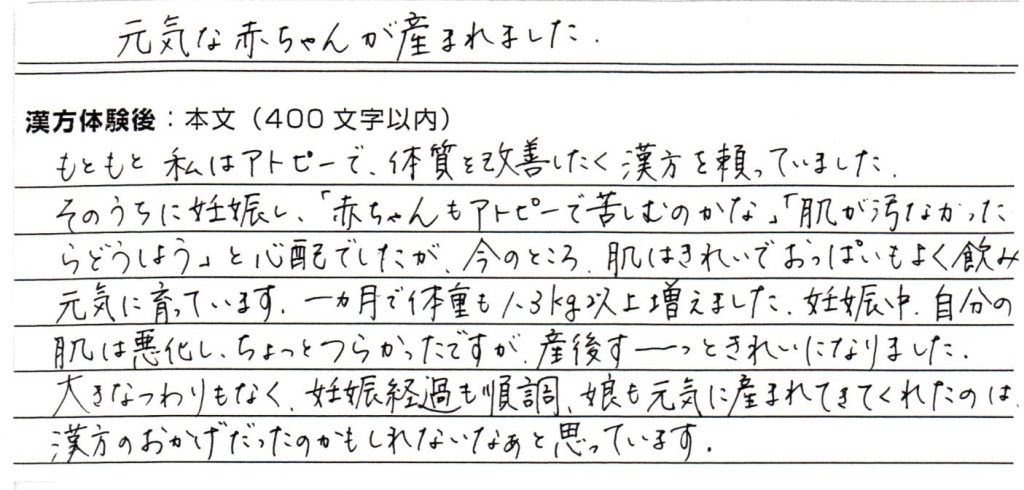 元気な赤ちゃんが産まれました.
漢方体験後：本文（400文字以内）
もともと私はアトピーで、体質を改善したく漢方を頼っていました.
そのうちに妊娠し、「赤ちゃんもアトピーで苦しむのかな」「肌が汚なかった
らどうしよう」と心配でしたが、今のところ、肌はきれいでおっぱいもよく飲み
元気に育っています. 一ヵ月で体重も1.3kg以上増えました. 妊娠中、自分の
肌は悪化し、ちょっとつらかったですが、産後すーーっときれいになりました.
大きなつわりもなく、妊娠経過も順調、娘も元気に産まれてきてくれたのは
漢方のおかげだったのかもしれないなぁと思っています.